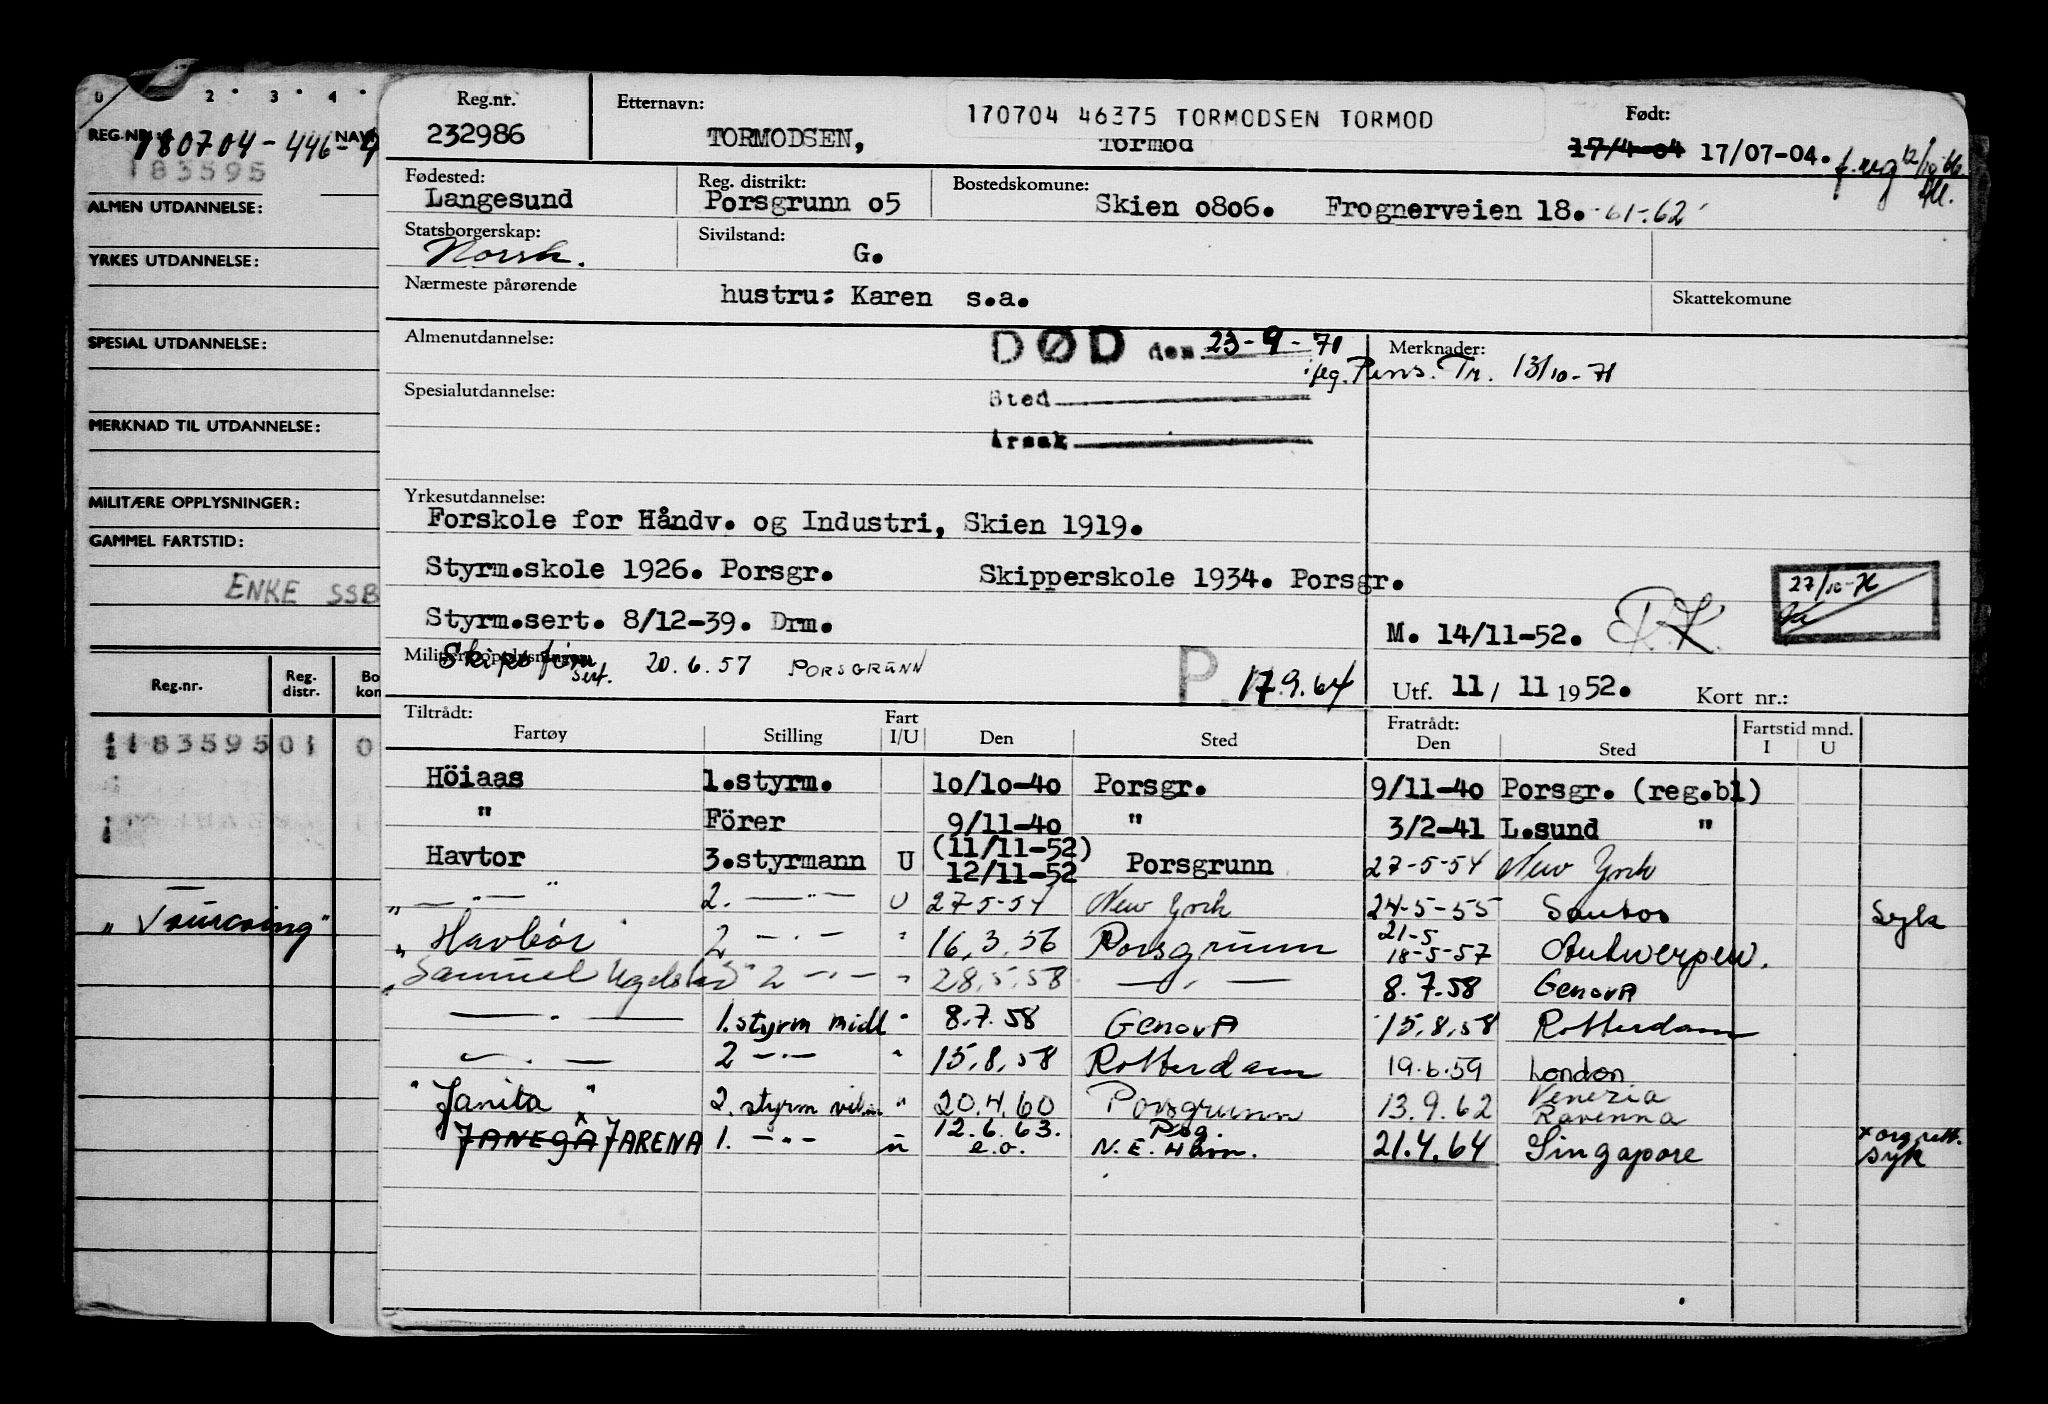 0 2 3 4
REG.NR.: 180704-446 NAVN
183595
ALMEN UTDANNELSE:
YRKES UTDANNELSE:
SPESIAL UTDANNELSE:
MERKNAD TIL UTDANNELSE:
MILITÆRE OPPLYSNINGER:
GAMMEL FARTSTID:
ENKE SSB
Reg.nr. Reg. distr. Bo kom
18359501 0
"Tourcoing"
Reg.nr. Etternavn: 170704 46375 TORMODSEN TORMOD Født:
232986 TORMODSEN, Tormod 17/4-04 17/07-04. f. reg 12/10 66
Fødested: Reg. distrikt: Bostedskomune:
Langesund Porsgrunn o5 Skien o8o6. Frognerveien 18. -61-62
Statsborgerskap: Sivilstand:
Norsk. G.
Nærmeste pårørende hustru: Karen s.a. Skattekomune
Almenutdannelse: DØD den 23-9-71 Merknader:
flg. Pens. Tr. 13/10-71
Spesialutdannelse: Sted
Årsak
Yrkesutdannelse:
Forskole for Håndv. og Industri, Skien 1919.
Styrm.skole 1926. Porsgr. Skipperskole 1934. Porsgr. 27/10-71
Styrm.sert. 8/12-39. Drm. M. 14/11-52. R.K.
Militære opplysninger Skipsfører sert. 20.6.57 PORSGRUNN P. 17.9.64 Utf. 11/ 11 1952. Kort nr.:
Tiltrådt: Fart Fratrådt: Fartstid mnd.
Fartøy Stilling I/U Den Sted Den Sted I U
Höiaas 1.styrm. 1o/1o-4o Porsgr. 9/11-4o Porsgr. (reg.bl)
" Förer 9/11-4o " 3/2-41 L.sund "
Havtor 3.styrmann U (11/11-52) 12/11-52 Porsgrunn 27-5-54 New York
" — " — " 2. — " — U 27-5-54 New York 24-5-55 Santos Syk
" Havbör 2 — " — " 16.3.56 Porsgrunn 21-5 18-5-57 Antwerpen.
"Samuel Ugelstad" 2 — " — " 28.5.58 — " — 8.7.58 GenovA
— " — 1. styrm midl " 8.7.58 GenovA 15.8.58 Rotterdam
— " — 2 — " — " 15.8.58 Rotterdam 19.6.59 London
"Janita" 2. styrm " 20.4.60 Porsgrunn 13.9.62 Venezia Ravenna
JANEGA x JARENA 1. — " — u 12.6.63. e.o. Psg. N.E. Havn. 21.4.64 Singapore x org rett. syk